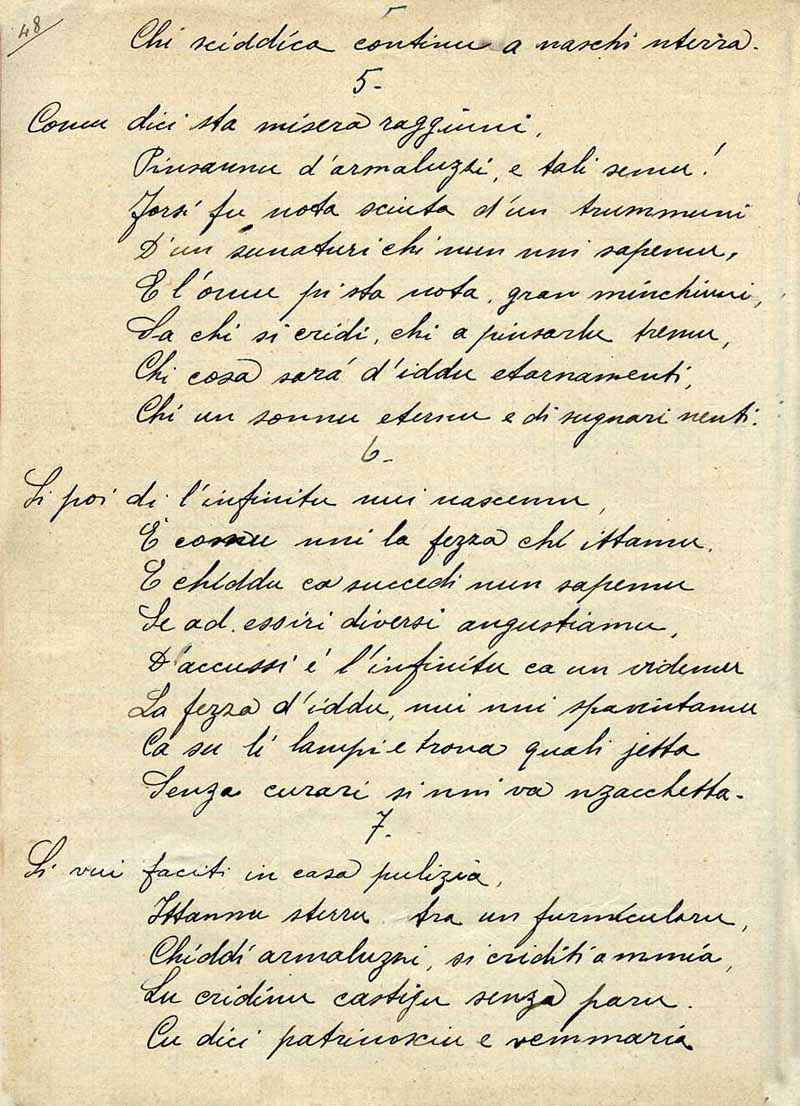 48
5
Chi sciddica continu a naschi nterra.
5-
Comu dici sta misera raggiuni,
Pinsannu d'armaluzzi, e tali semu!
Forsi fu nota sciuta d'un trummuni
D'un sunaturi chi nun nni sapemu,
E l'omu pi sta nota, gran minchiuni,
Sa chi si cridi, chi a pinsarlu tremu,
Chi cosa sarà d'iddu etarnamenti,
Chi un sonnu eternu e di sugnari nenti.
6-
Si poi di l'infinitu nui nascemu,
E comu nni la fezza chi ittamu.
E chiddu ca succedi nun sapemu
Se ad essiri diversi angustiamu,
D'accussi é l'infinitu ca un videmu
La fezza d'iddu, nui nni spavintamu
Ca su li lampi e trona quali jetta
Senza curari si nni va nzacchetta.
7.
Si vui faciti in casa pulizia,
Ittannu sterru tra un furmicularu,
Chiddi armaluzzi, si criditi a mmia,
Lu cridinu castigu senza paru.
Cu dici patrinosciu e vemmaria